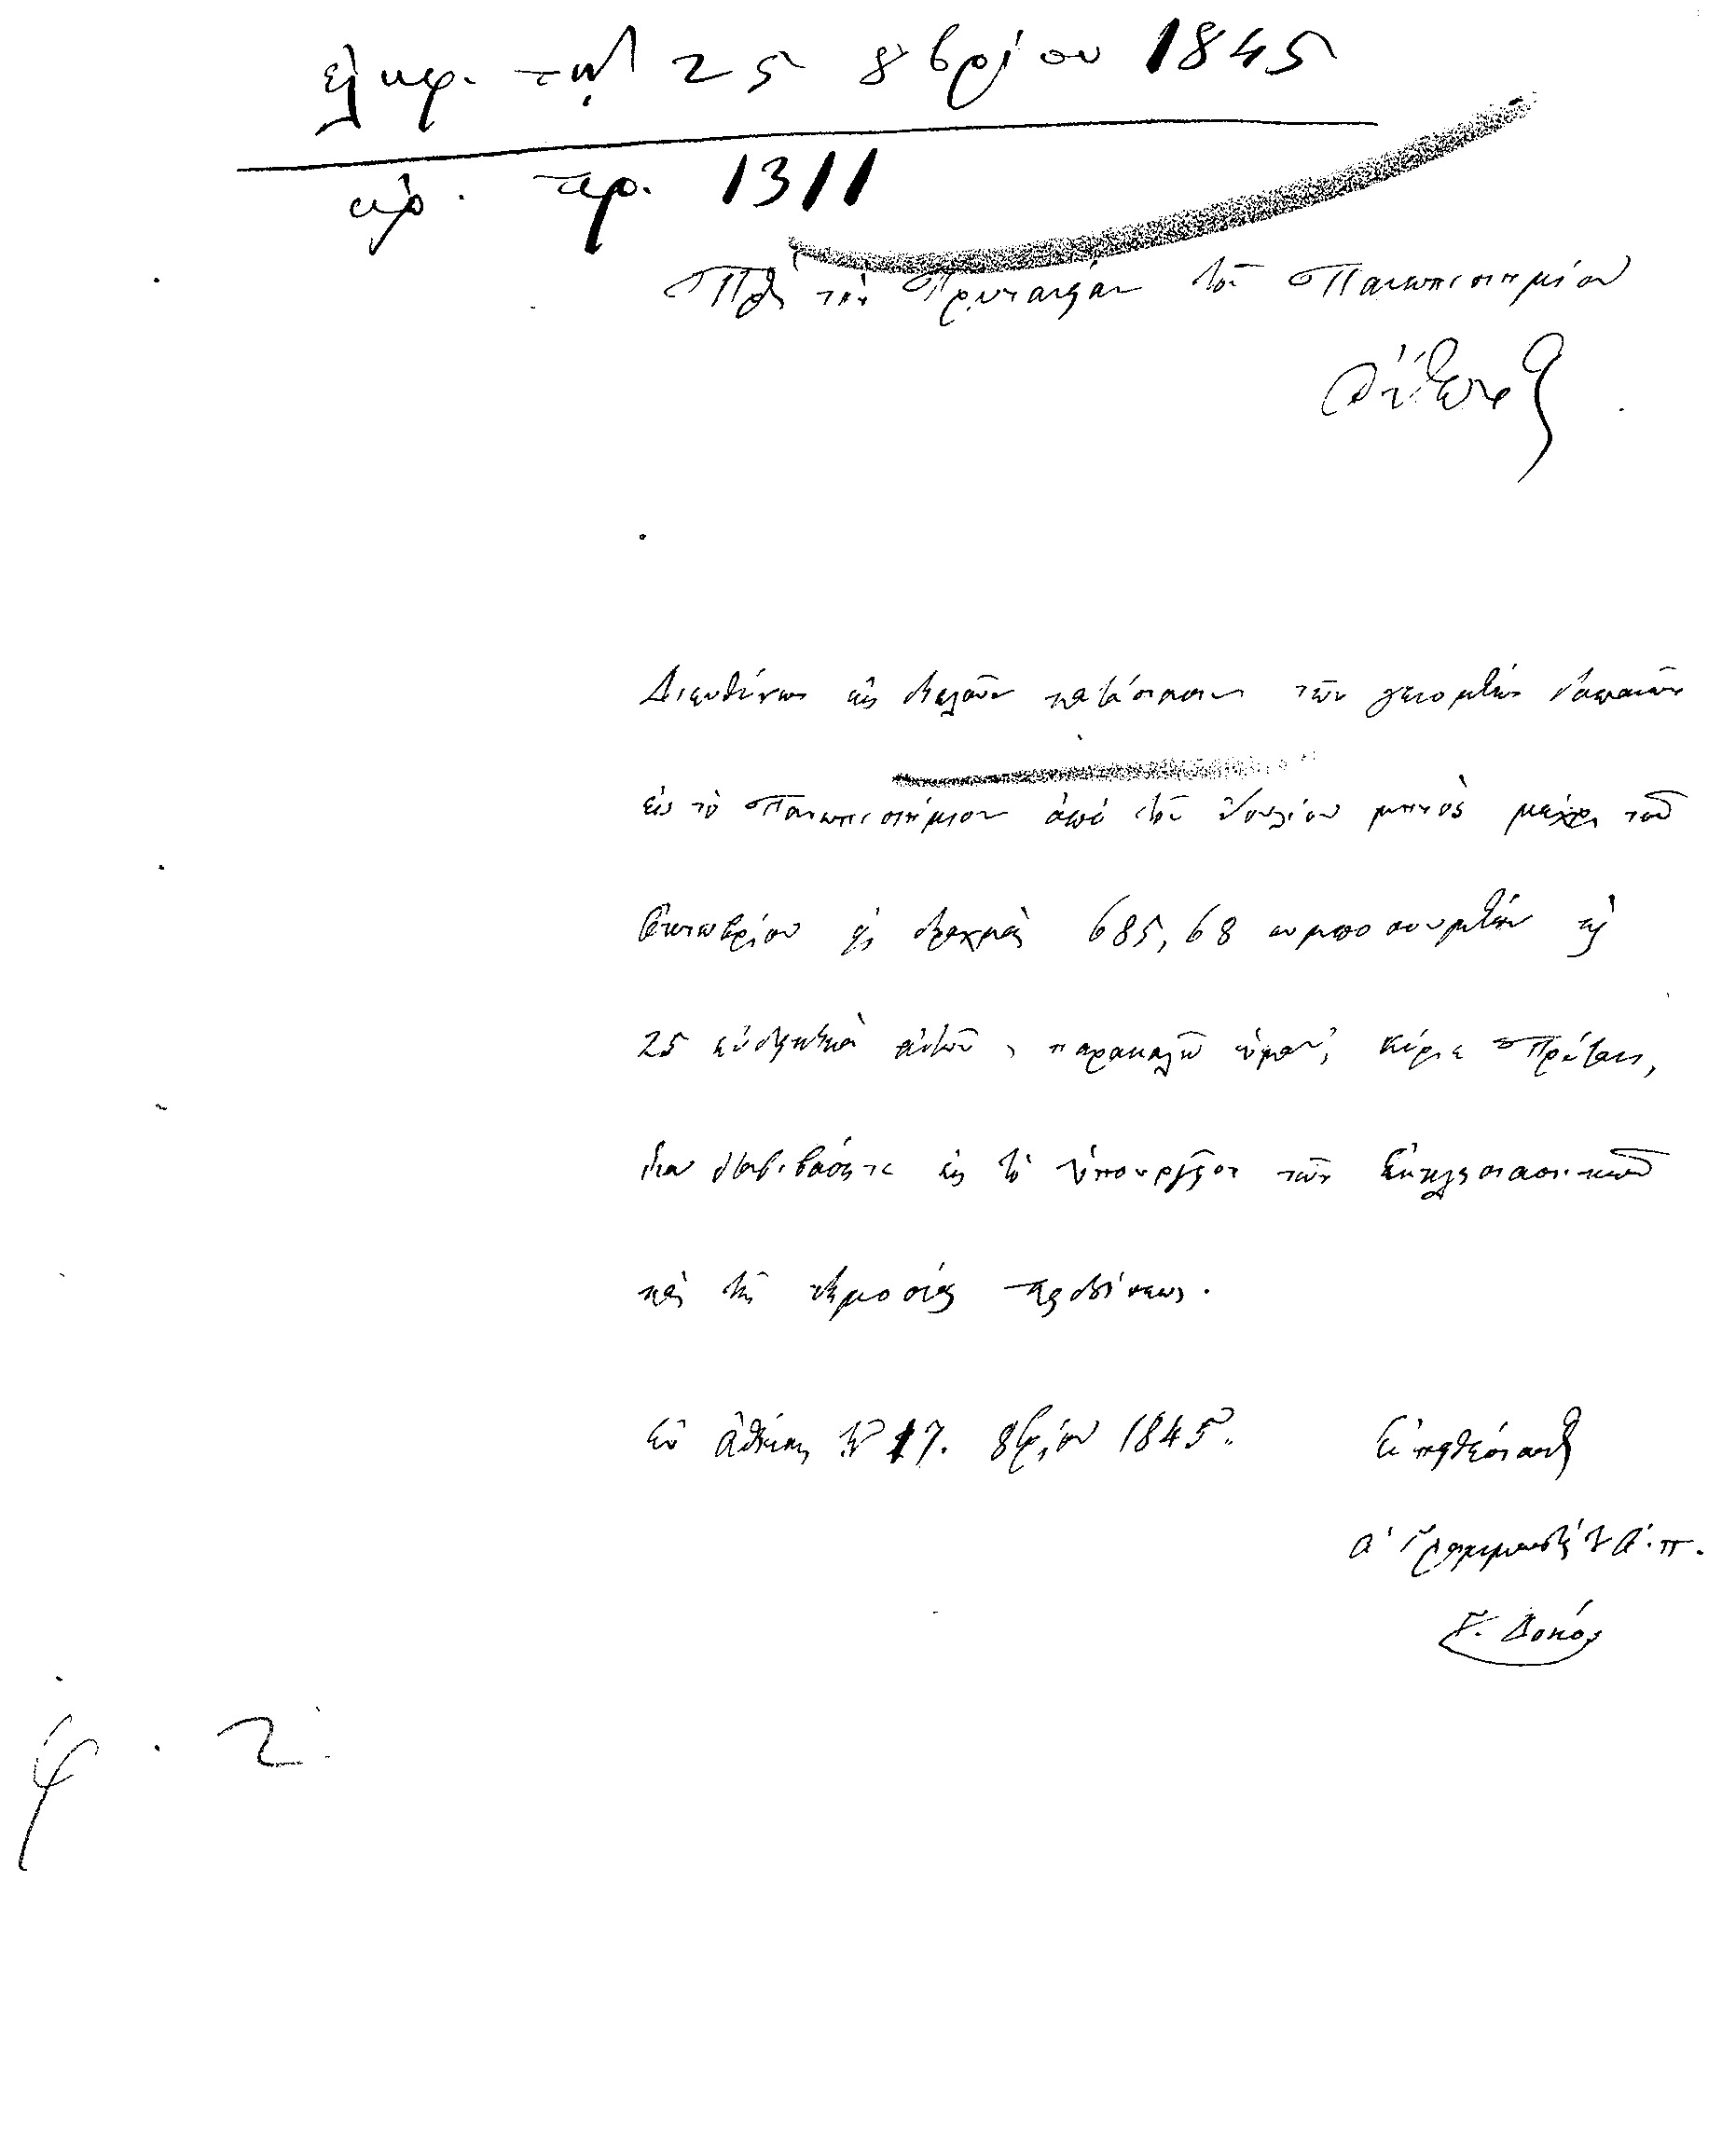 ἐλήφ. τὴν 25 8βρίου 1845
ἀρ. πρ. 1311
Πρὸς τὸν Πρύτανιν τοῦ Πανεπιστημίου
Ὄθωνος
Διευθύνων εἰς διπλοῦν κατάστασιν τῶν γενομένων δαπανῶν
εἰς τὸ Πανεπιστήμιον ἀπὸ τοῦ Ἰουλίου μηνὸς μέχρι τοῦ
Ὀκτωβρίου ἐκ δραχμὰς 685,68 συμποσουμένων καὶ
25 ἀποδεικτικὰ αὐτῶν, παρακαλῶ ὑμᾶς, Κύριε Πρύτανι,
ἵνα διαβιβάσητε εἰς τὸ Ὑπουργεῖον τῶν Ἐκκλησιαστικῶν
καὶ τῆς δημοσίας ἐκπαιδεύσεως.
Ἐν Ἀθήναις τὴν 17. 8βρίου 1845.
Εὐπειθέστατος
Ὁ Γραμματεὺς τ. Ὀ. π.
Γ. Δοκός
φ. 2